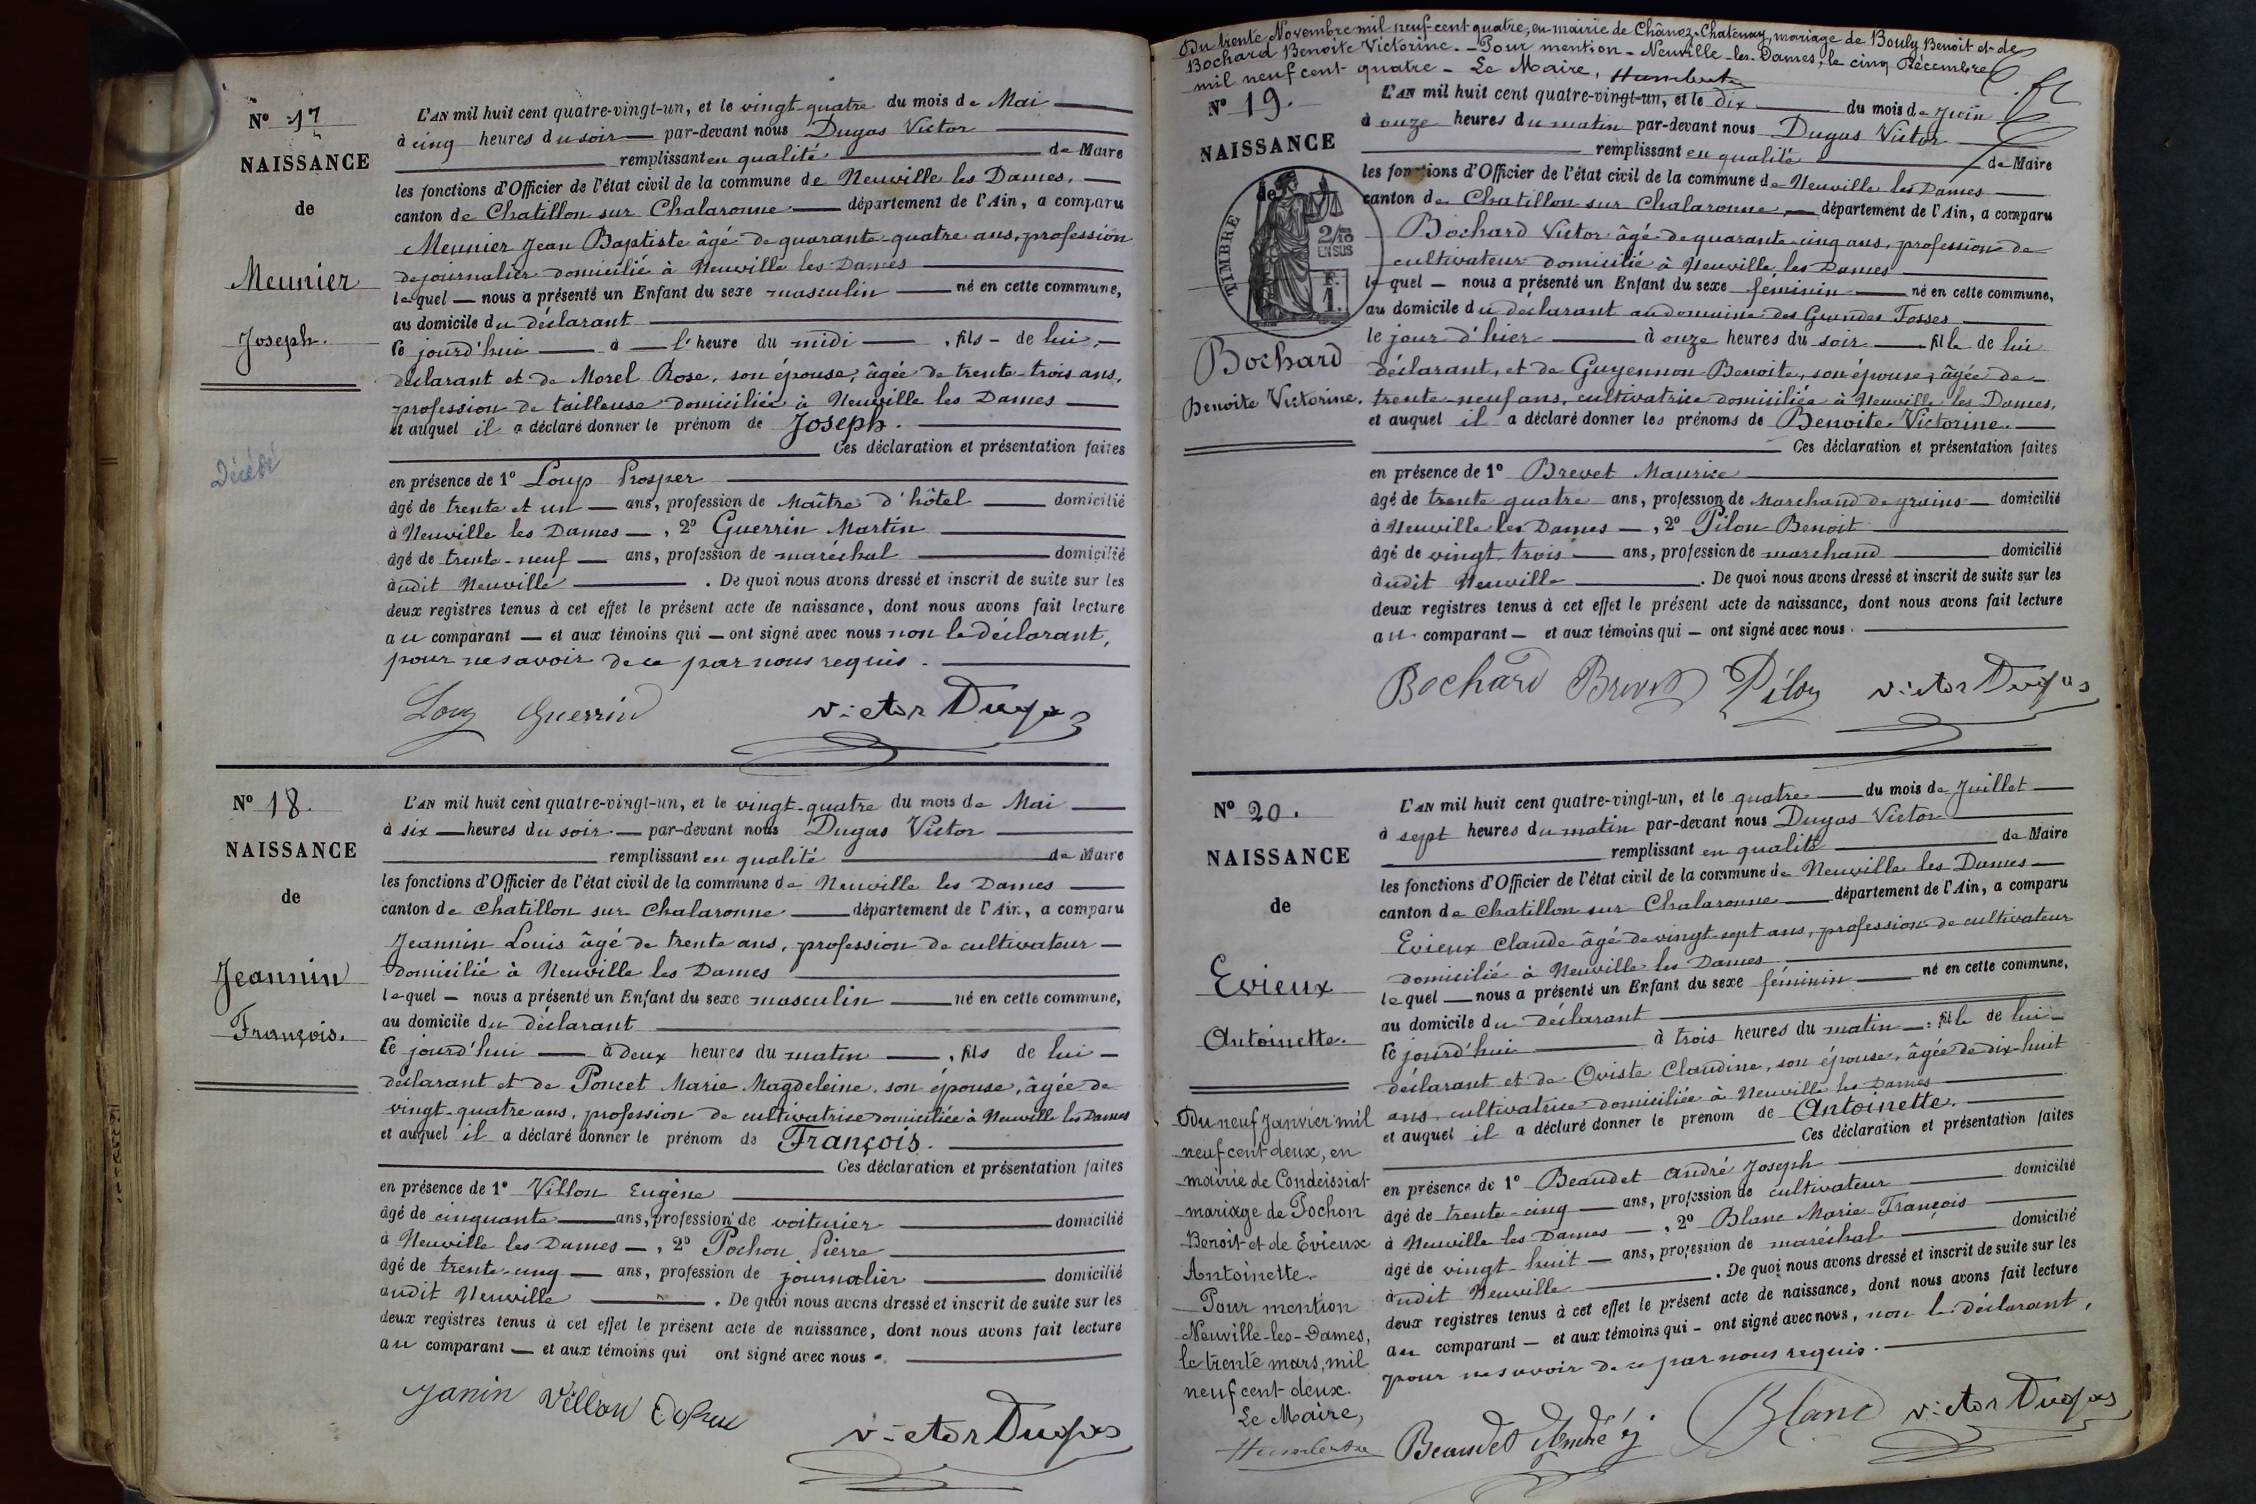 Nº 17
NAISSANCE
de
Meunier
Joseph.
Décédé
L'AN mil huit cent quatre-vingt-un, et le vingt-quatre du mois de Mai
à cinq heures du soir par-devant nous Dugas Victor
remplissant en qualité de Maire
les fonctions d'Officier de l'état civil de la commune de Neuville les Dames,
canton de Chatillon sur Chalaronne département de l'Ain, a comparu
Meunier Jean Baptiste âgé de quarante-quatre ans, profession
de journalier domicilié à Neuville les Dames
lequel nous a présenté un Enfant du sexe masculin né en cette commune,
au domicile du déclarant
ce jourd'hui à l'heure du midi, fils de lui,
déclarant et de Morel Rose, son épouse, âgée de trente-trois ans,
profession de tailleuse domiciliée à Neuville les Dames
et auquel il a déclaré donner le prénom de Joseph.
Ces déclaration et présentation faites
en présence de 1º Loup Prosper
âgé de trente et un ans, profession de Maître d'hôtel domicilié
à Neuville les Dames, 2º Guerrin Martin
âgé de trente-neuf ans, profession de maréchal domicilié
audit Neuville. De quoi nous avons dressé et inscrit de suite sur les
deux registres tenus à cet effet le présent acte de naissance, dont nous avons fait lecture
au comparant et aux témoins qui ont signé avec nous non le déclarant,
pour ne savoir de ce par nous requis.
Loup Guerrin Victor Dugas
Nº 18.
NAISSANCE
de
Jeannin
François.
L'AN mil huit cent quatre-vingt-un, et le vingt-quatre du mois de Mai
à six heures du soir par-devant nous Dugas Victor
remplissant en qualité de Maire
les fonctions d'Officier de l'état civil de la commune de Neuville les Dames
canton de Chatillon sur Chalaronne département de l'Ain, a comparu
Jeannin Louis âgé de trente ans, profession de cultivateur
domicilié à Neuville les Dames
lequel nous a présenté un Enfant du sexe masculin né en cette commune,
au domicile du déclarant
ce jourd'hui à deux heures du matin, fils de lui
déclarant et de Poncet Marie Magdeleine, son épouse, âgée de
vingt-quatre ans, profession de cultivatrice domiciliée à Neuville les Dames
et auquel il a déclaré donner le prénom de François.
Ces déclaration et présentation faites
en présence de 1º Villon Eugène
âgé de cinquante ans, profession de voiturier domicilié
à Neuville les Dames, 2º Pochon Pierre
âgé de trente-cinq ans, profession de journalier domicilié
audit Neuville. De quoi nous avons dressé et inscrit de suite sur les
deux registres tenus à cet effet le présent acte de naissance, dont nous avons fait lecture
au comparant et aux témoins qui ont signé avec nous.
Janin Villon Victor Dugas
Du trente Novembre mil neuf-cent quatre, en mairie de Chânoz-Chatenay, mariage de Bouly Benoit et de
Bochard Benoite Victorine. - Pour mention - Neuville-les-Dames, le cinq Décembre
mil neuf cent quatre - Le Maire, Humbert
Nº 19.
NAISSANCE
de
TIMBRE
2/10
EN SUS
F.
1.
Bochard
Benoite Victorine.
L'AN mil huit cent quatre-vingt-un, et le dix du mois de Juin
à onze heures du matin par-devant nous Dugas Victor
remplissant en qualité de Maire
les fonctions d'Officier de l'état civil de la commune de Neuville les Dames
canton de Chatillon sur Chalaronne, département de l'Ain, a comparu
Bochard Victor âgé de quarante-cinq ans, profession de
cultivateur domicilié à Neuville les Dames
lequel nous a présenté un Enfant du sexe féminin né en cette commune,
au domicile du déclarant au domaine des Grandes Fosses
le jour d'hier à onze heures du soir fille de lui
déclarant, et de Guyennon Benoite, son épouse, âgée de
trente-neuf ans, cultivatrice domiciliée à Neuville les Dames,
et auquel il a déclaré donner les prénoms de Benoite Victorine.
Ces déclaration et présentation faites
en présence de 1º Brevet Maurice
âgé de trente quatre ans, profession de Marchand de grains domicilié
à Neuville les Dames, 2º Pilon Benoit
âgé de vingt-trois ans, profession de marchand domicilié
audit Neuville. De quoi nous avons dressé et inscrit de suite sur les
deux registres tenus à cet effet le présent acte de naissance, dont nous avons fait lecture
au comparant et aux témoins qui ont signé avec nous.
Bochard Brevet Pilon Victor Dugas
Nº 20.
NAISSANCE
de
Evieux
Antoinette.
Du neuf Janvier mil
neuf cent deux, en
mairie de Condeissiat
mariage de Pochon
Benoit et de Evieux
Antoinette.
Pour mention
Neuville-les-Dames,
le trente mars, mil
neuf cent deux.
Le Maire,
Humbert
L'AN mil huit cent quatre-vingt-un, et le quatre du mois de Juillet
à sept heures du matin par-devant nous Dugas Victor
remplissant en qualité de Maire
les fonctions d'Officier de l'état civil de la commune de Neuville les Dames
canton de Chatillon sur Chalaronne département de l'Ain, a comparu
Evieux Claude âgé de vingt-sept ans, profession de cultivateur
domicilié à Neuville les Dames
lequel nous a présenté un Enfant du sexe féminin né en cette commune,
au domicile du déclarant
ce jourd'hui à trois heures du matin, fille de lui
déclarant et de Oviste Claudine, son épouse, âgée de dix-huit
ans, cultivatrice domiciliée à Neuville les Dames
et auquel il a déclaré donner le prénom de Antoinette.
Ces déclaration et présentation faites
en présence de 1º Beaudet André Joseph
âgé de trente-cinq ans, profession de cultivateur domicilié
à Neuville les Dames, 2º Blanc Marie François
âgé de vingt-huit ans, profession de maréchal domicilié
audit Neuville. De quoi nous avons dressé et inscrit de suite sur les
deux registres tenus à cet effet le présent acte de naissance, dont nous avons fait lecture
au comparant et aux témoins qui ont signé avec nous, non le déclarant,
pour ne savoir de ce par nous requis.
Beaudet André j Blanc Victor Dugas